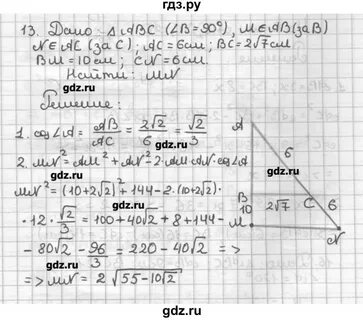 гдз.ру
13. Дано: △ ABC (∠B = 90°), M∈AB (за B)
N∈AC (за C); AC = 6см; BC = 2√7 см
BM = 10см; CN = 6см.
Найти: MN
gdz.ru
Решение:
1. cos∠A = AB/AC = 2√2/6 = √2/3
2. MN² = AM² + AN² - 2·AM·AN·cos∠A
MN² = (10+2√2)² + 144 - 2·(10+2√2)·
·12·√2/3 = 100 + 40√2 + 8 + 144 -
- 80√2 - 96/3 = 220 - 40√2 =>
=> MN = 2√55-10√2
A
6
B
10
2√7
C
6
M
gdz.ru
gdz.ru
gdz.ru
gdz.ru
gdz.ru
gdz.ru